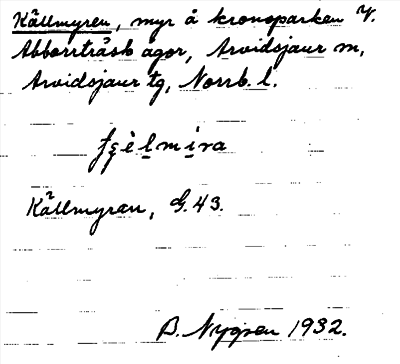 Källmyren, myr å kronoparken V.
Abborrträsk ägor, Arvidsjaur m,
Arvidsjaur tg, Norrb. l.
Källmyran, G. 43.
B. Nygren 1932.